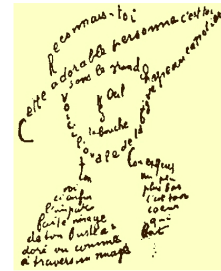 Reconnais-toi
Cette adorable personne c'est toi
Sous le grand chapeau canotier
Œil
la bouche
Voici l'ovale de ta figure
ton
cou exquis
voi
ci enfin
l'impar
faite image
de ton buste a
doré vu comme
à travers un nuage
un peu
plus bas
c'est ton
coeur
qui
bat